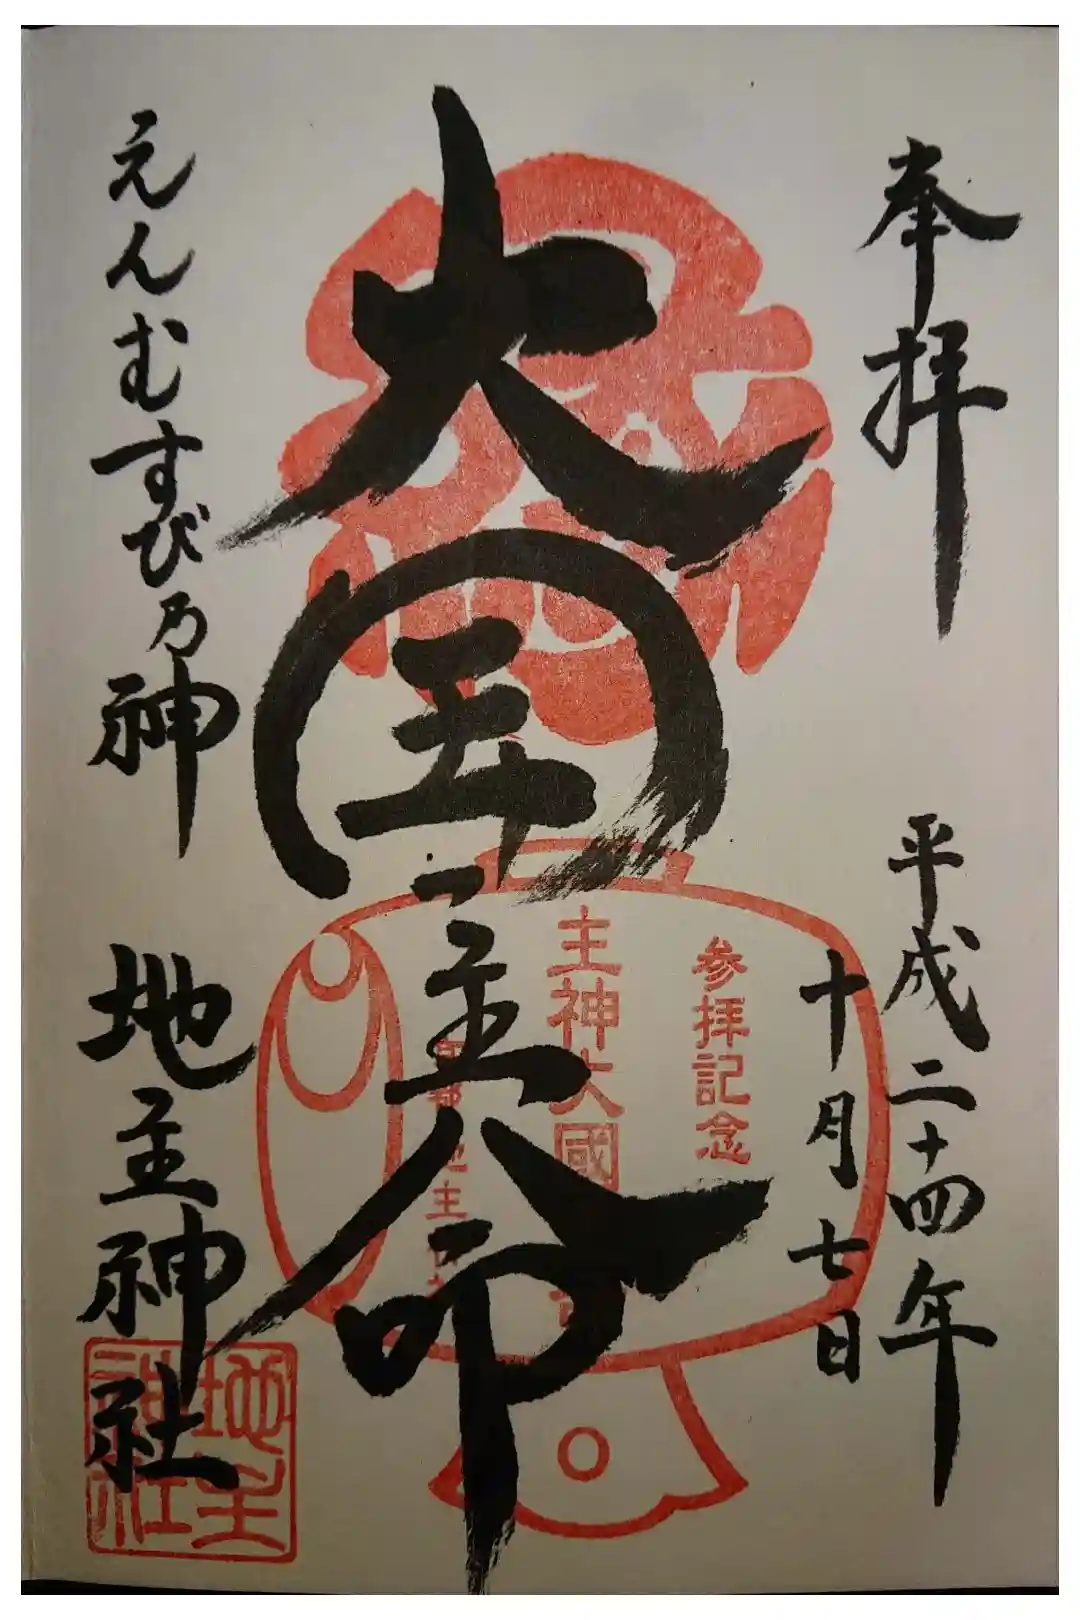 奉拝
平成二十四年
十月七日
参拝記念
主神大國
大国主命
地主
えんむすび乃神
地主神社
地主
神社